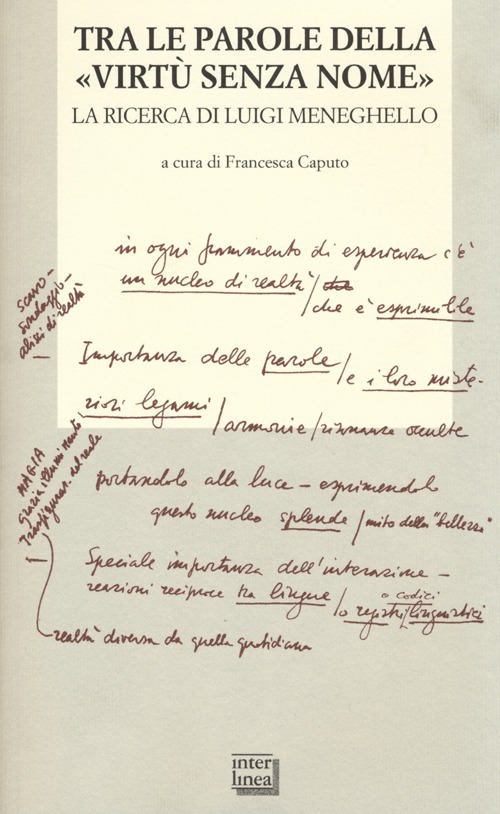 TRA LE PAROLE DELLA
«VIRTÙ SENZA NOME»
LA RICERCA DI LUIGI MENEGHELLO
a cura di Francesca Caputo
in ogni frammento di esperienza c'è
un nucleo di realtà / che
/ che è esprimibile
SCAVO –
sondaggio –
alisi di realtà
Importanza delle parole / e i loro miste-
riosi legami / armonie / risonanze occulte
MAGIA
Grazia, illuminante,
Trasfiguraz. del reale
portandolo alla luce – esprimendolo
questo nucleo splende / mito della "bellezza"
Speciale importanza dell'interazione –
reazioni reciproce tra lingue / o registri / linguistici
o codici
realtà diversa da quella quotidiana
inter
linea